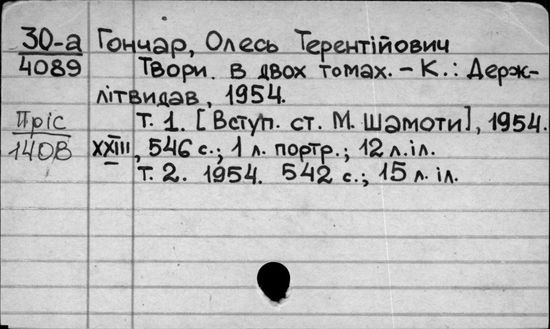 30-а Гончар, Олесь Терентійович
4089 Твори. В двох томах. – К.: Держ-
літвидав, 1954.
Пріс т. 1. [Вступ. ст. М. Шамоти], 1954.
140В XXIII, 546 с.; 1 л. портр.; 12 л. іл.
т. 2. 1954. 542 с.; 15 л. іл.